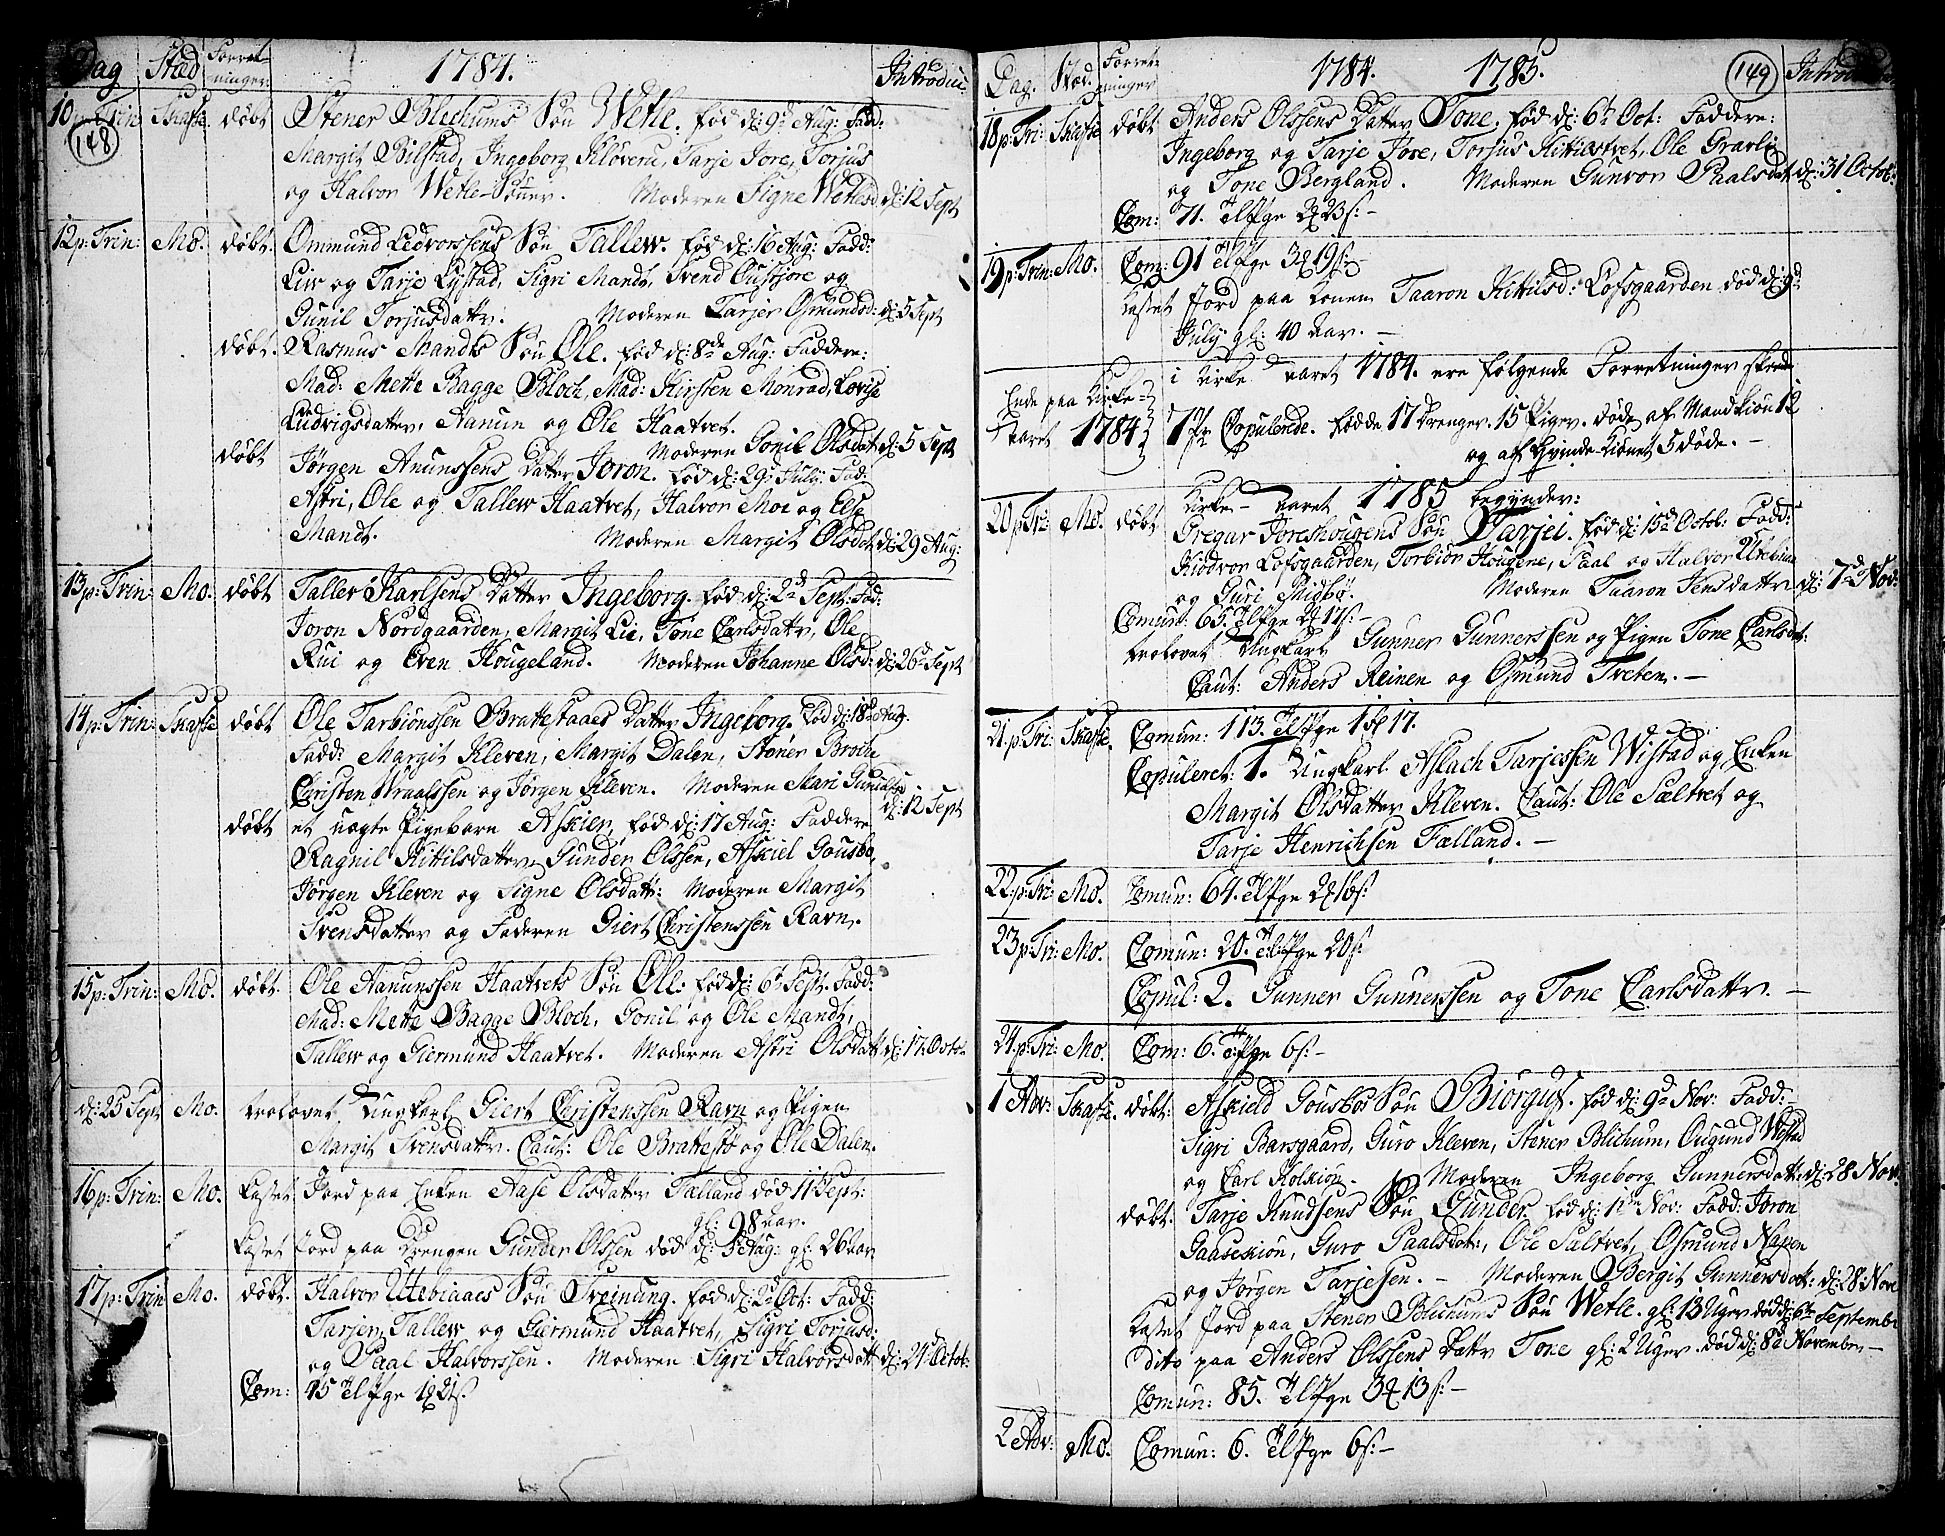 Dag Stæd Forret- 1784. Introduc
ninger
148
10 p: Trin Skafse døbt Stener Blechums Søn Wetle. fød d: 9de Aug: Fadd:
Margit Bilstad, Ingeborg Kløveru, Tarje Jore, Torjus
og Halvor Wetle-Sønner. Moderen Signe Wetlesd d: 12 Sept
12 p: Trin: Mo. døbt. Ommund Ledvorssens Søn Tallew. fød d: 16 Aug: Fadd:
Liv og Tarje Lystad, Sigri Mandt, Svend Øustjore og
Gunil Torjusdattr. Moderen Tarjer Osmundsd: d: 5 Sept
døbt. Rasmus Mandts Søn Ole. fød d: 8de Aug: Faddere:
Mad: Mette Bagge Bloch, Mad: Kirsten Monrad, Lovise
Ludvigsdatter, Aanun og Ole Haatvet.
Moderen Gonil Olsdat d: 5 Sept
døbt Jørgen Anunssens Datter Joron. fød d: 29 July. Fad:
Astri, Ole og Tallew Haatvet, Halvor Moe og Else
Mandt. Moderen Margit Olsdat d: 29 Aug:
13 p: Trin: Mo. døbt Tallev Karlsens Datter Ingeborg. fød d: 2d Sept: Fad:
Joron Nordgaarden, Margit Lie, Tone Carlsdattr, Ole
Rui og Even Hougeland. Moderen Johanne Olsd: d: 26 Sept
14 p: Trin: Skafse døbt Ole Tarbiønssen Brattestaaes Datter Ingeborg. fød d: 18de Aug.
Fadd: Margit Kleven, Margit Dalen, Stener
Christen Wraalssen og Jørgen Kleven. Moderen Mari
d: 12 Sept
døbt et uægte Pigebarn Askier, fød d: 17 Aug: Faddere
Ragnil Kittilsdatter, Gunder Olssen, Askiel Gousbo,
Jørgen Kleven og Signe Olsdatt: Moderen Margit
Svensdatter og Faderen Giert Christenssen Ravn.
15 p: Trin: Mo. døbt. Ole Aanunssen Haatvets Søn Ole: fød d: 6te Sept. Fadd:
Mad: Mette Bagge Bloch, Gonil og Ole Mandt,
Tallew og Giermund Haatvet. Moderen Astri Olsdatt d: 17 Octo:
d: 25 Sept Mo. trolovet Ungkarl Giert Christenssen Ravn og Pigen
Margit Svensdattr. Caut: Ole Brattestø og Ole Dalen.
16 p: Trin: Mo. kastet Jord paa Enken Aase Olsdatter Fælland død 11 Sept:
gl: 98 Aar.
kastet Jord paa Drengen Gunder Olssen død d: 5 Aug: gl: 26 aar
17 p: Trin Mo. døbt. Halvor Utebiaaes Søn Treinung. fød d: 2d Oct: Fadd:
Tarjer, Tallew og Giermund Haatvet, Sigri Torjusd:
og Paal Halvorssen. Moderen Sigri Halvorsdatt d: 24 Octob:
Com: 45
Dag. Stæd. Forret- 1784. 1785. 149 Introduc
ninger
18 p: Tri: Skafse døbt Anders Olssens Datter Tone. fød d: 6te Oct: Faddere:
Ingeborg og Tarje Jore, Torjus Kittilstvet, Ole Gravli
og Tone Bergland. Moderen Gunvor Paalsdat d: 31 Octob:
Com: 71.
19 p: Trin: Mo. Com: 91
kastet Jord paa Konen Taaron Kittilsd: Lofsgaarden død d: 9d
July gl: 40 Aar. –
Ende paa Kirke- i Kirke aaret 1784. ere følgende Forretninger skeede
aaret 1784 7 Pr Copulerede. fødde 17 Drenger. 15 Piger. døde af Mandkiøn 12
og af Qvinde-Kiønet 5 døde. –
Kirke-aaret 1785 begynder:
20 p: Tri: Mo. døbt Gregar Joreshougens Søn Tarjei. fød d: 15de Octob: Fadd:
Kiodvor Lofsgaarden, Torbiør Hougene, Paal og Halvor Utebiaa
og Guri Midbø. Moderen Taaron Jensdattr d: 7de Nov:
Comun: 65.
trolovet Ungkarl Gunner Gunnerssen og Pigen Tone Carlsdt:
Caut: Anders Reinen og Osmund Treten. –
21. p: Tri: Skafse. Comun: 113.
Copuleret: 1. Ungkarl Aslach Tarjessen Wistad og Enken
Margit Olsdatter Kleven. Caut: Ole Sæltvet og
Tarje Henrichsen Fælland. –
22: p: Tri: Mo. Comun: 64.
23 p: Tri: Mo. Comun: 20.
Copul: 2. Gunner Gunnerssen og Tone Carlsdattr. –
24 p: Tri: Mo. Com: 6.
1 Adv: Skafse. døbt: Askield Gousbøs Søn Biørguf. fød d: 9d Nov: Fadd: –
Sigri Barsgaard, Guro Kleven, Stener Blichum, Ougund Wistad
og Carl Holkiøn. Moderen Ingeborg Gunnersdatt: d: 28 Nov:
døbt. Tarje Knudsens Søn Gunder fød d: 11te Nov: Fadd: Joron
Gaaseskiøn, Guro Paalsdat:, Ole Sæltvet, Osmund Næpen
og Jørgen Tarjesen. – Moderen Bergit Gunnersdatt: d: 28 Nove
kastet Jord paa Stener Blichums Søn Wetle. gl: 13 Uger død d: 6te Septembr
Dito paa Anders Olssens Dattr Tone gl: 2 Uger. død d: 8d November –
Comun: 85.
2 Adv: Mo. Comun: 6.